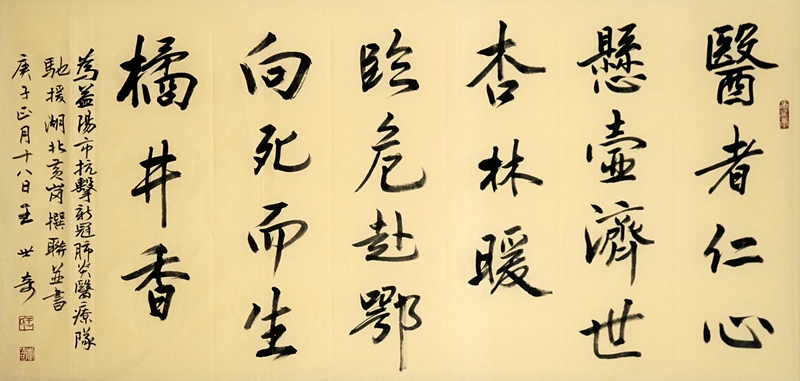 醫者仁心
懸壺濟世
杏林暖
臨危赴鄂
向死而生
橘井香
為益陽市抗擊新冠肺炎醫療隊
馳援湖北黃岗撰聯並書
庚子正月十八日王世奇